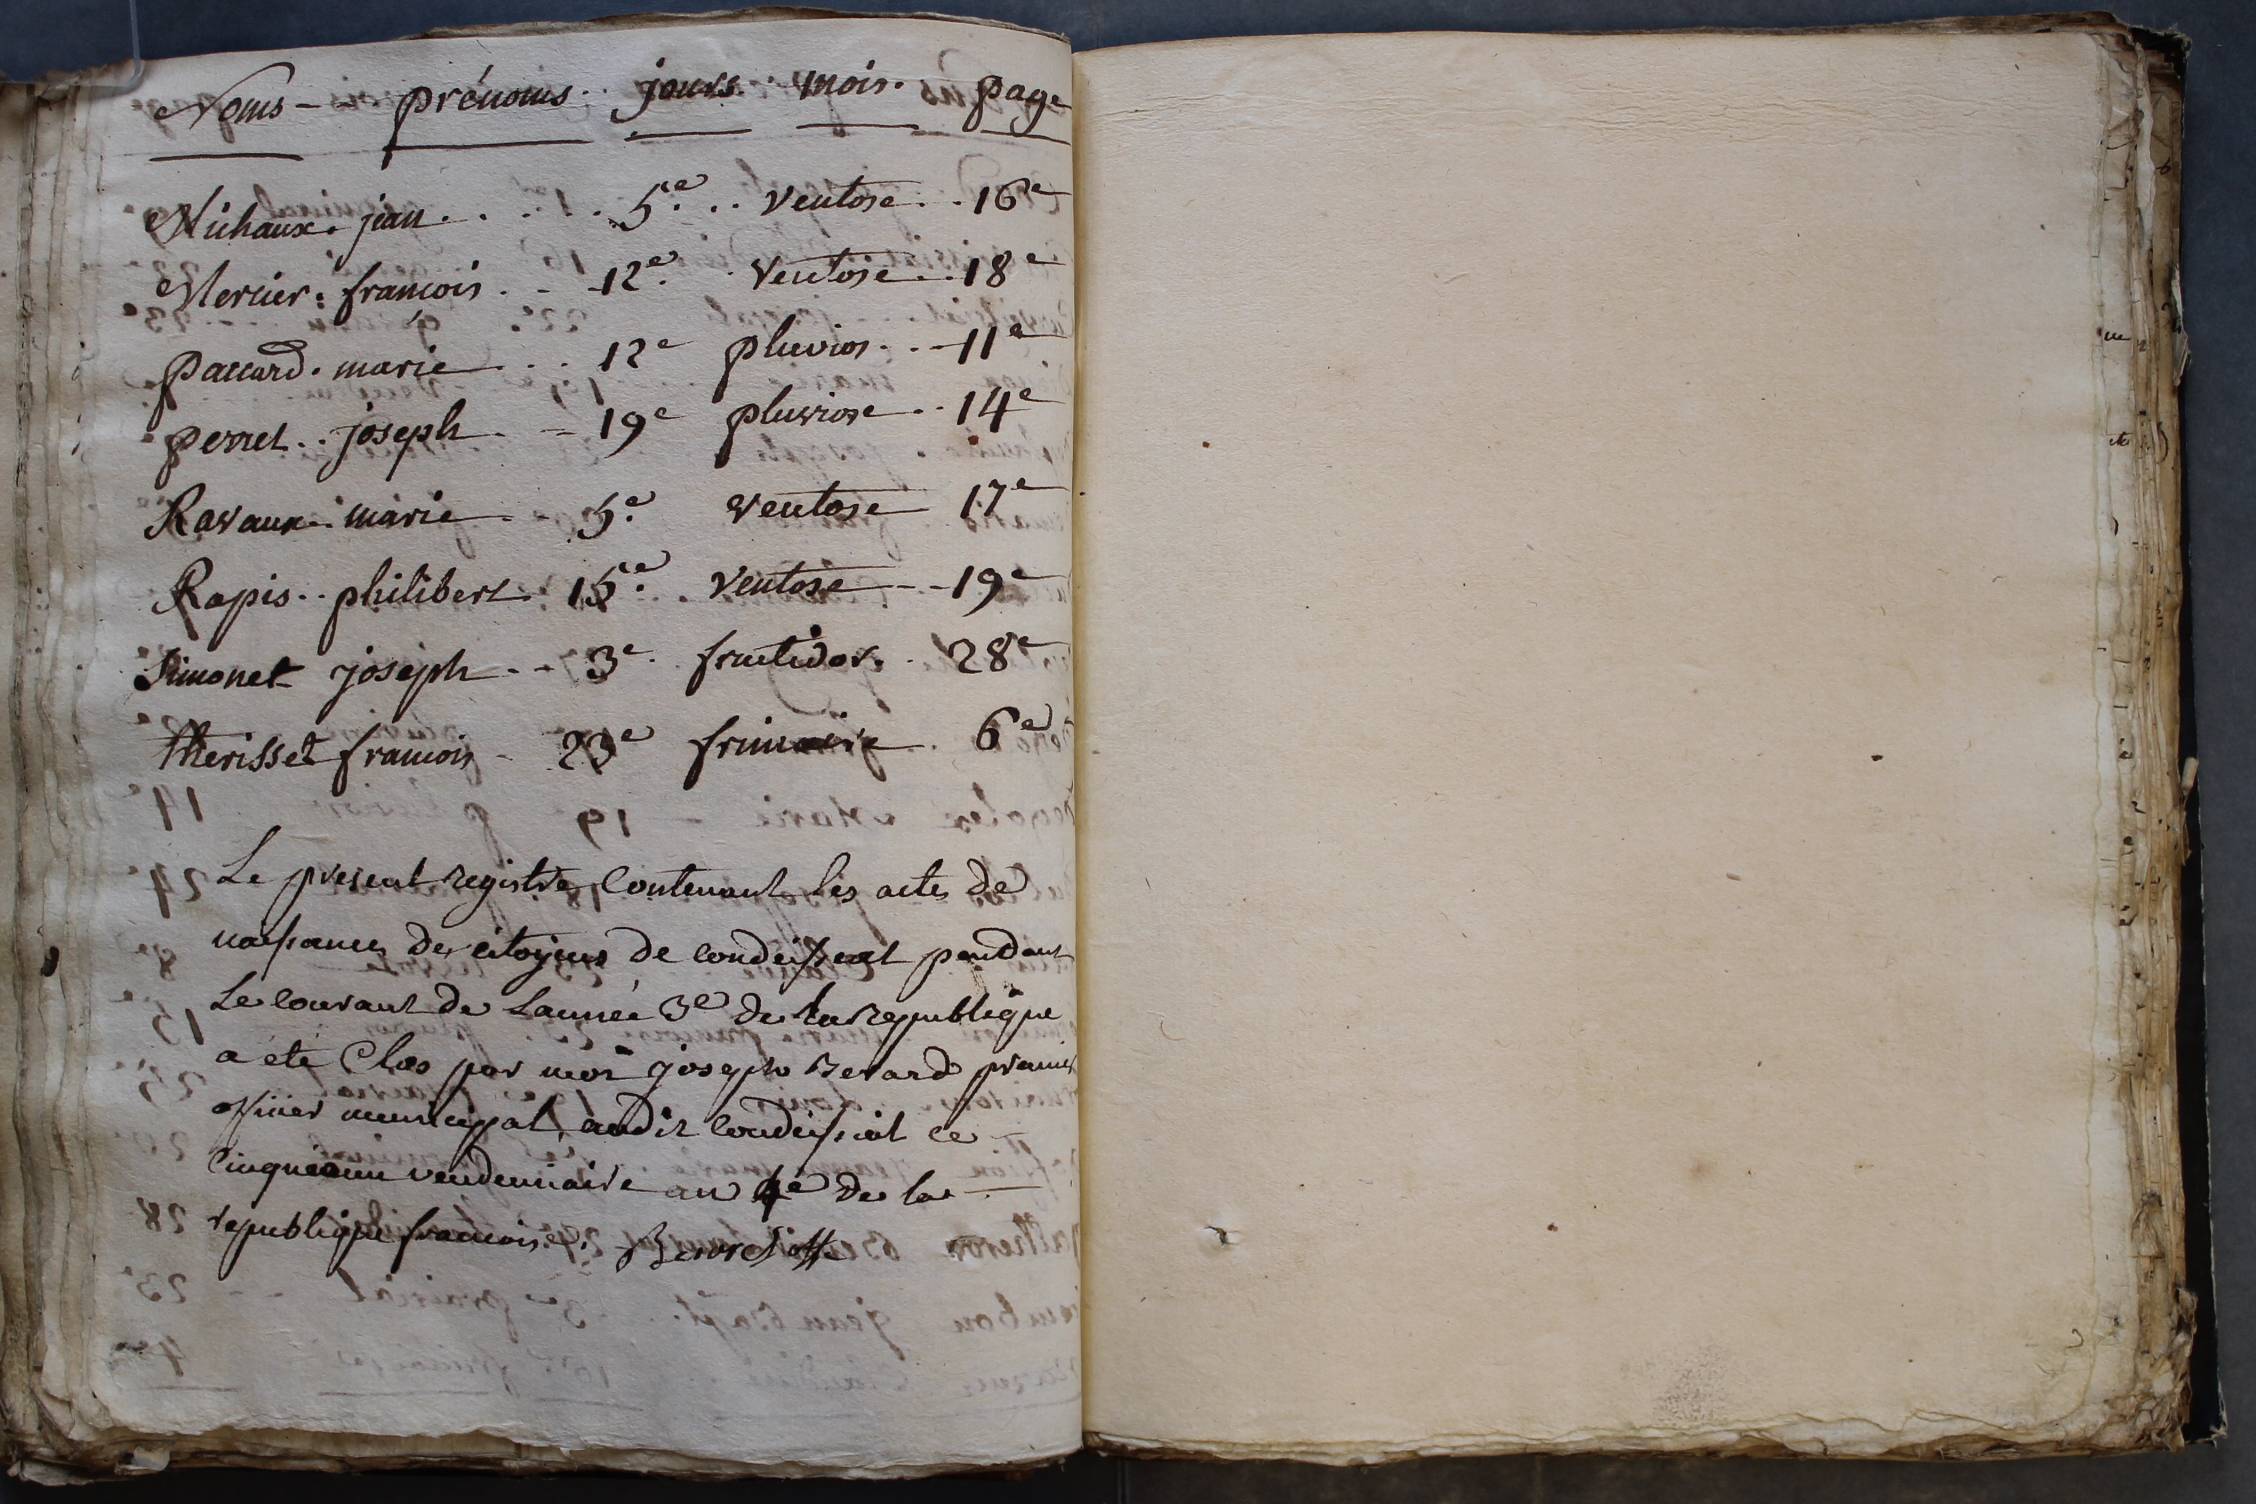 Noms - - prénoms. jours. mois. page
Michaux. jean . . . . 5e. . . ventose. . 16e
Mercier. francois . - - 12e. . Ventose. . 18e
paccard. marie . . . 12e pluvios. . - 11e
perret. . joseph. - = 19e pluviose. . 14e
Ravaux. marie. - - 5e. ventose 17e
Rapis. . philibert. 15e. Ventose - - 19e
Simonet joseph. - - 3e. fructidor. . 28e
therisset francois - 23e frimaire . 6e
Le present registre Contenant les actes de
naissances des citoyens de condeissiat pendant
Le courant de Lannée 3e de la republique
a été Clos par moi joseph Berard premier
officier municipal audit condeissiat ce
Cinquieme vendemiaire an 4e de la
republique francoise. Berard offr